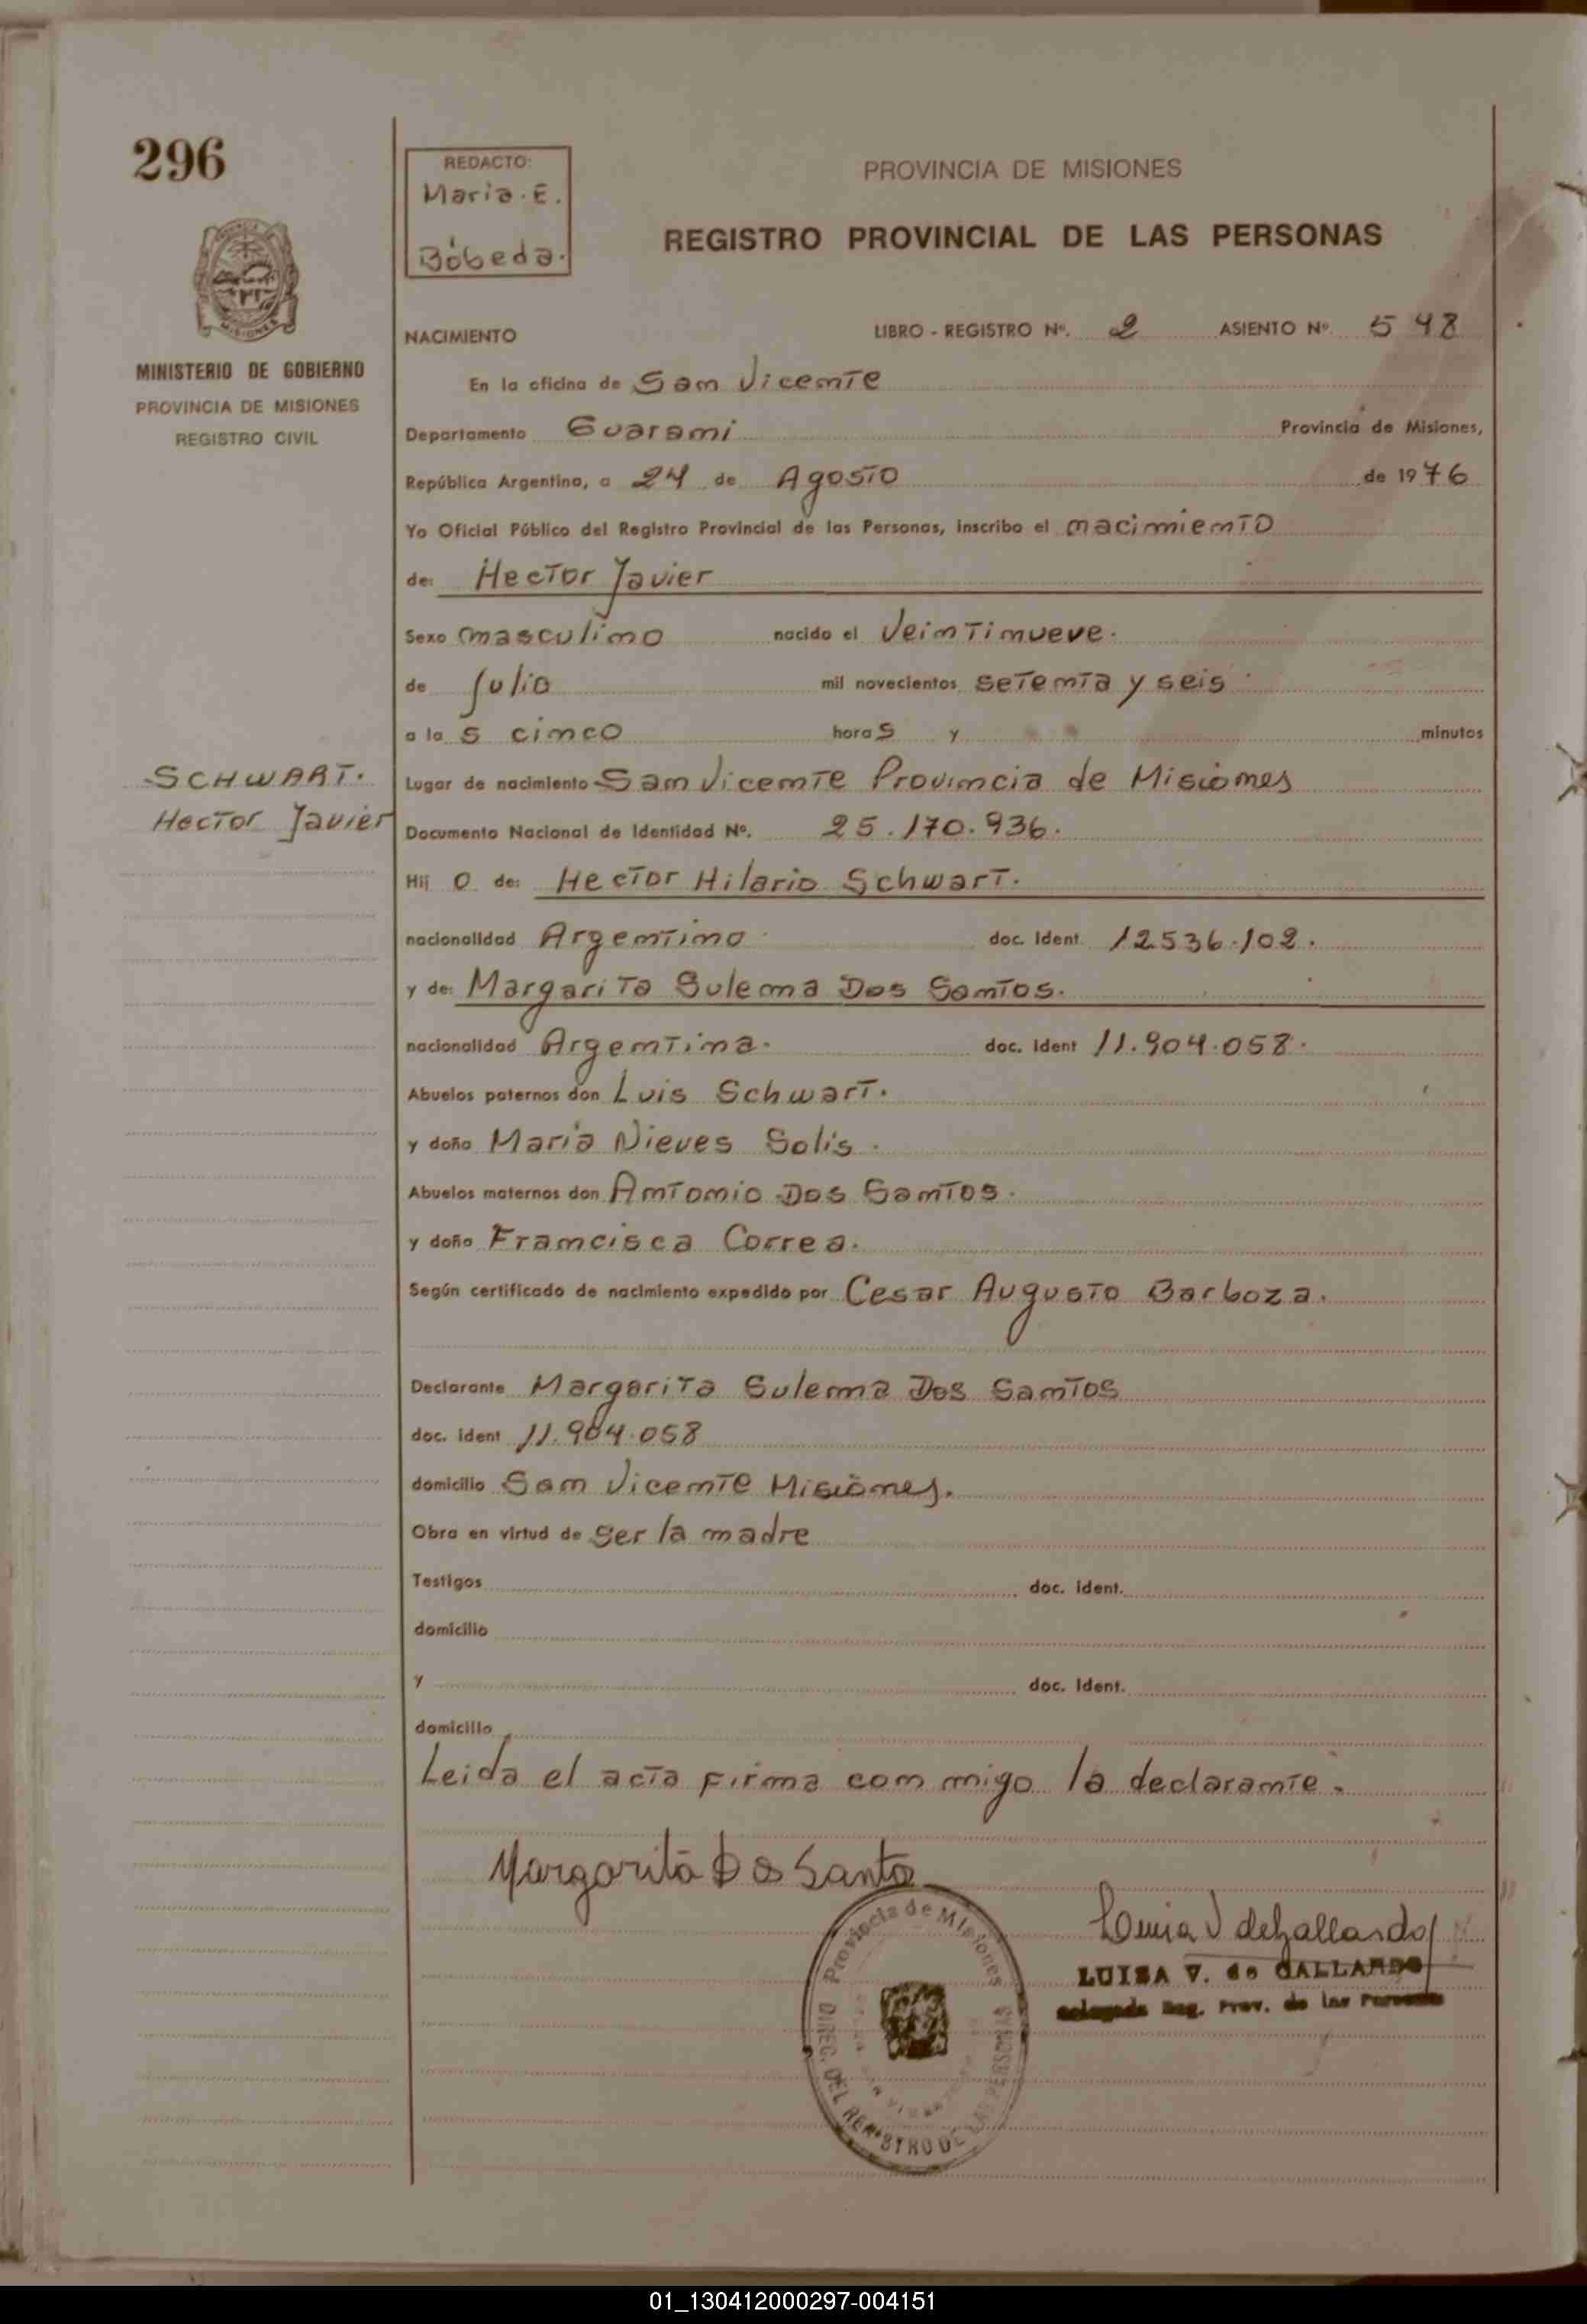 296
REDACTO:
Maria. E.
Bóbeda.
PROVINCIA DE MISIONES
REGISTRO PROVINCIAL DE LAS PERSONAS
MISIONES
MINISTERIO DE GOBIERNO
PROVINCIA DE MISIONES
REGISTRO CIVIL
NACIMIENTO LIBRO - REGISTRO Nº. 2 ASIENTO Nº. 548
En la oficina de San Vicente
Departamento Guarani Provincia de Misiones,
República Argentina, a 24 de Agosto de 1976
Yo Oficial Público del Registro Provincial de las Personas, inscribo el nacimiento
de: Hector Javier
Sexo masculino nacido el Veintinueve.
de Julio mil novecientos setenta y seis
a las cinco horas y minutos
SCHWART.
Hector Javier
Lugar de nacimiento San Vicente Provincia de Misiones
Documento Nacional de Identidad Nº. 25.170.936.
Hij o de: Hector Hilario Schwart.
nacionalidad Argentino doc. Ident. 12.536.102.
y de: Margarita Sulema Dos Santos.
nacionalidad Argentina. doc. Ident 11.904.058.
Abuelos paternos don Luis Schwart.
y doña Maria Nieves Solis.
Abuelos maternos don Antonio Dos Santos.
y doña Francisca Correa.
Según certificado de nacimiento expedido por Cesar Augusto Barboza.
Declarante Margarita Sulema Dos Santos
doc. ident 11.904.058
domicilio San Vicente Misiones.
Obra en virtud de ser la madre
Testigos doc. ident.
domicilio
y doc. Ident.
domicilio
Leida el acta firma con migo la declarante.
Margarita Dos Santo
Provincia de Misiones
DIREC. DEL REGISTRO DE LAS PERSONAS
Luisa V de Gallardo
LUISA V. de GALLARDO
Delegada Reg. Prov. de las Personas
01_130412000297-004151